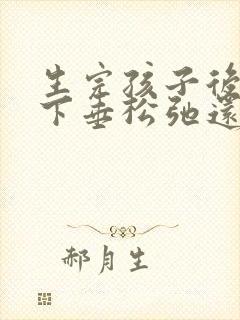 生完孩子後
下垂松弛還
郝月生